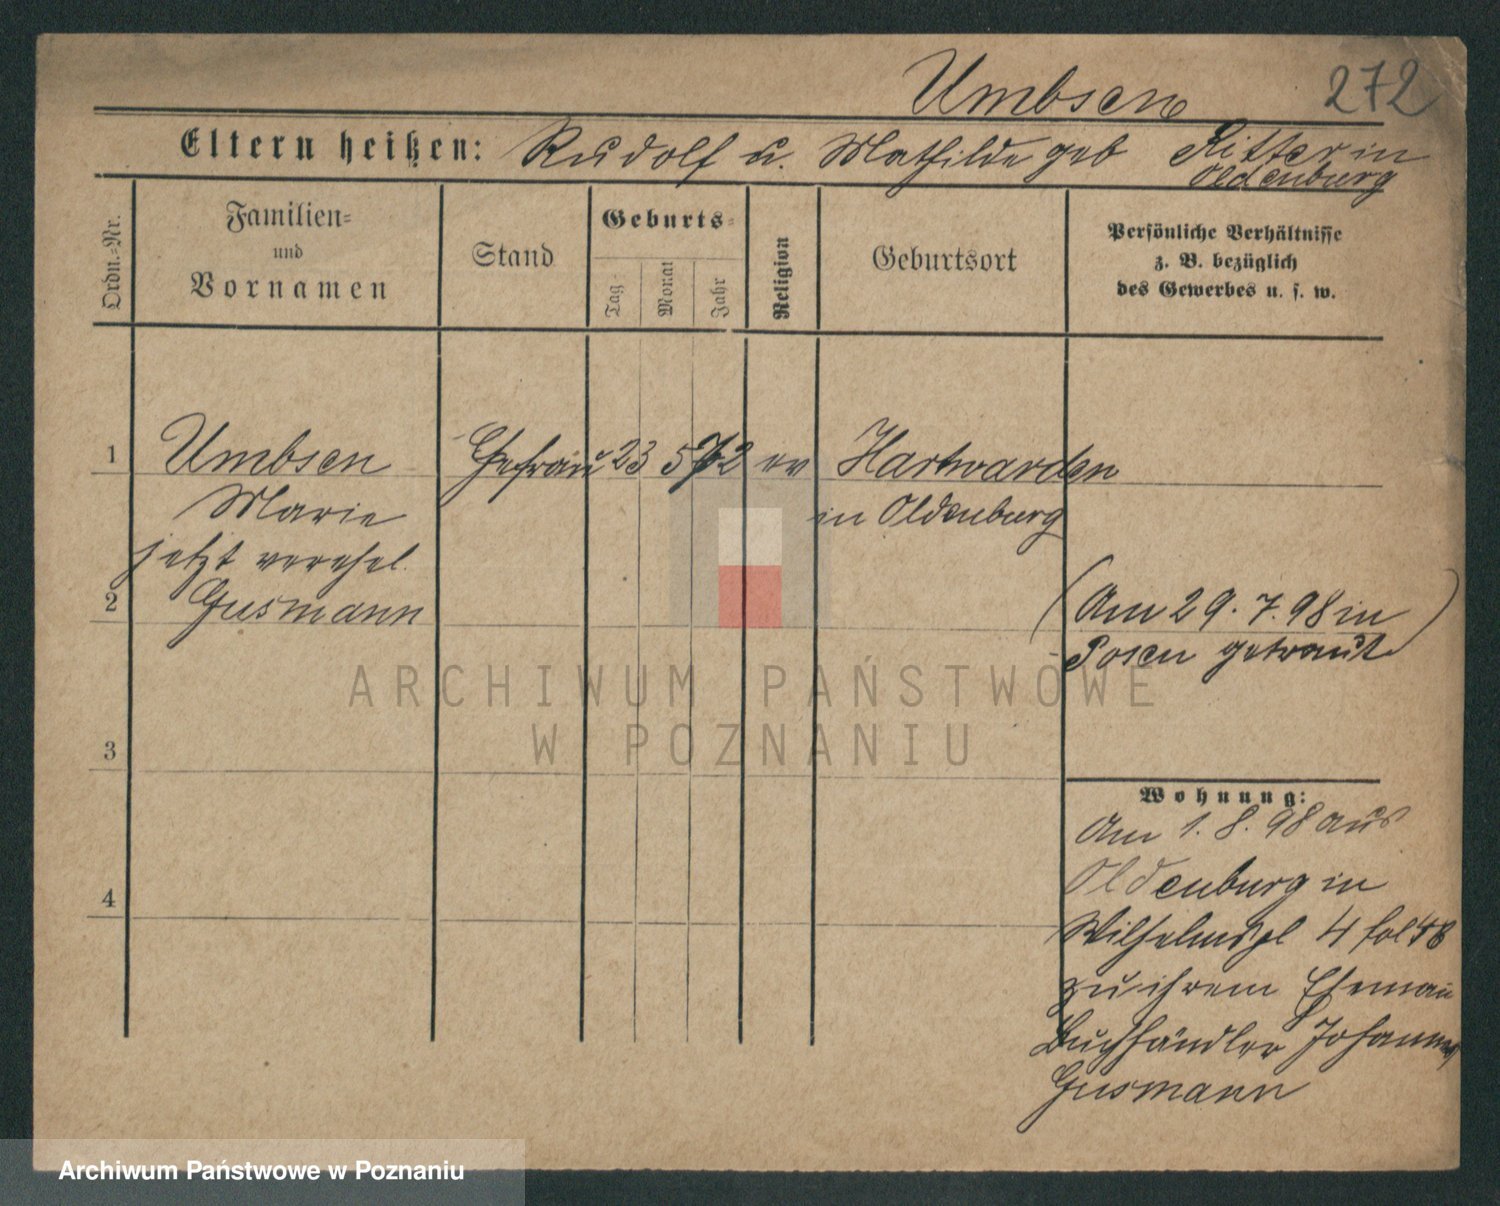 Umbsen 272
Eltern heißen: Rudolf u. Mathilde geb Ritter in
Oldenburg
Ordn.-Nr.
Familien-
und
Vornamen
Stand
Geburts-
Tag
Monat
Jahr
Religion
Geburtsort
Persönliche Verhältnisse
z. B. bezüglich
des Gewerbes u. s. w.
1 Umbsen Ehefrau 23 5 72 ev Hartwarden
Marie in Oldenburg
jetzt verehel.
2 Gusmann (Am 29.7.98 in
Posen getraut)
ARCHIWUM PAŃSTWOWE
W POZNANIU
3
Wohnung:
Am 1.8.98 aus
Oldenburg in
4
Wilhelmspl 4 fol 48
zu ihrem Ehemañ
Buchhändler Johannes
Gusmann
Archiwum Państwowe w Poznaniu